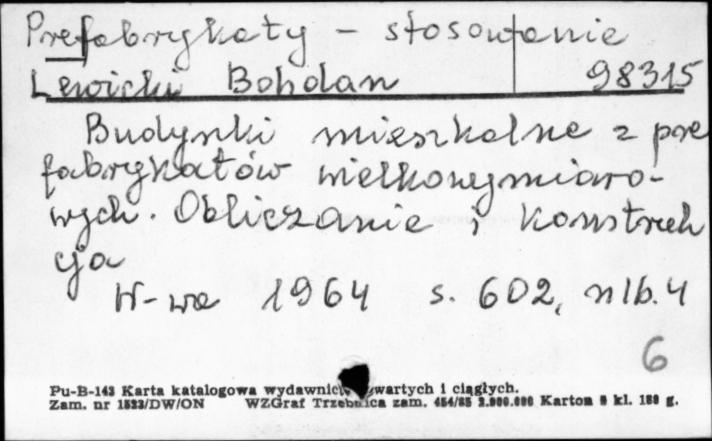 Prefabrykaty - stosowanie
Lewicki Bohdan 98315
Budynki mieszkalne z pre
fabrykatów wielkowymiaro-
wych. Obliczanie i konstruk
cja
W-wa 1964 s. 602, nlb. 4
6
Pu-B-143 Karta katalogowa wydawnictw zwartych i ciągłych.
Zam. nr 1533/DW/ON WZGraf Trzebnica zam. 454/85 Karton kl. g.